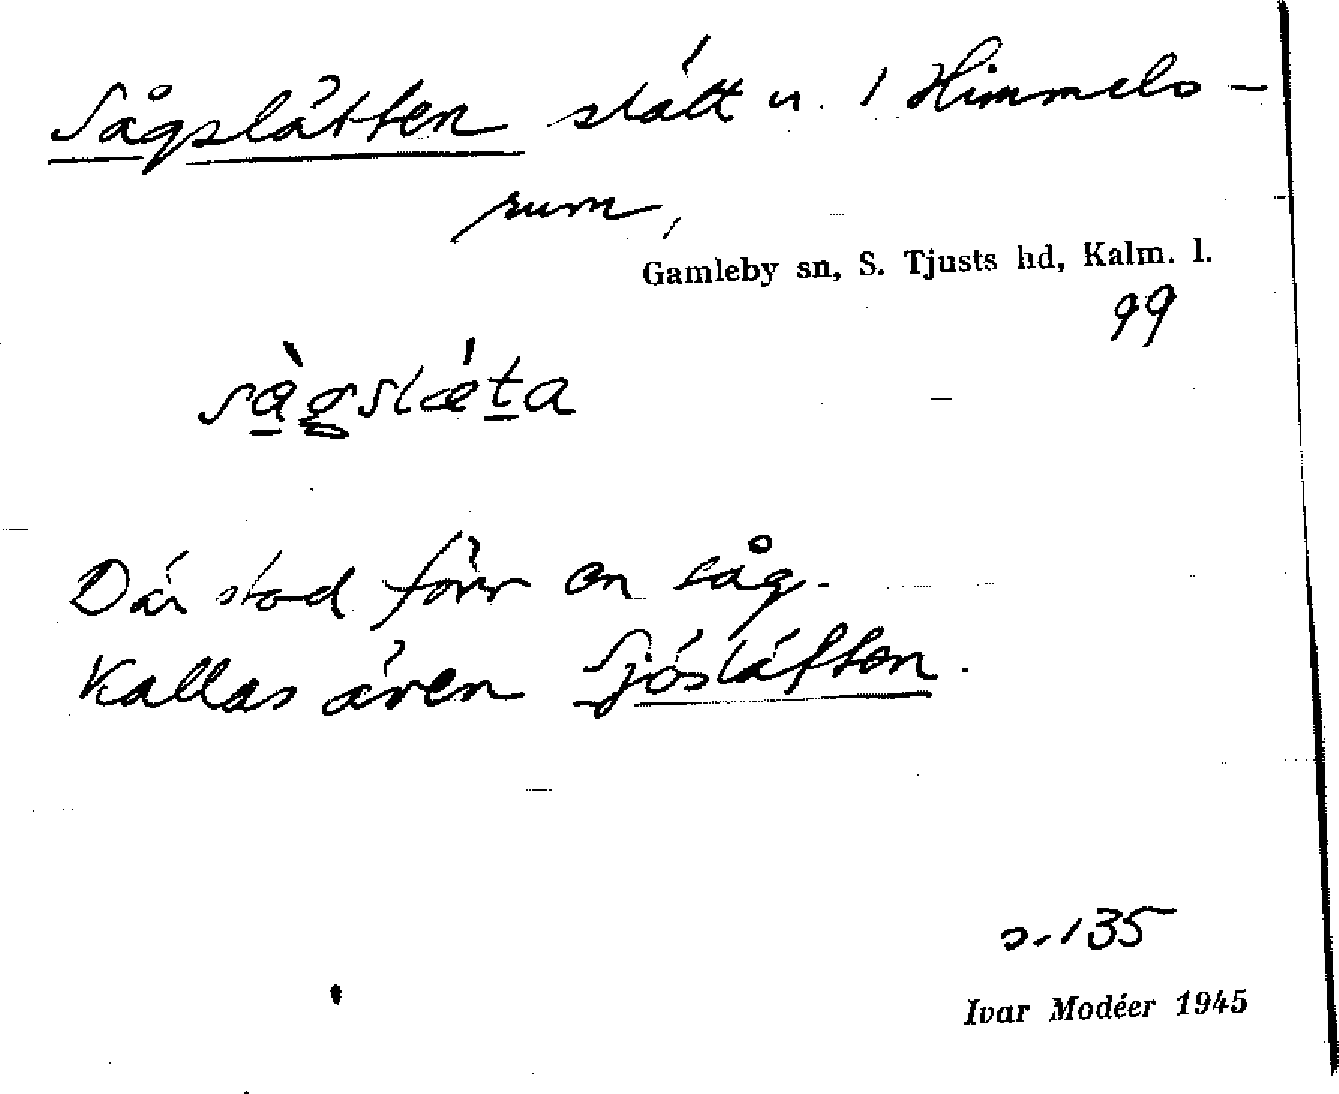 Sågslåtten slått u. 1 Himmels-
rum,
Gamleby sn, S. Tjusts hd, Kalm. l.
99
sàgslǽta
Där stod förr en såg.
Kallas även Sjöslåtten.
s. 135
Ivar Modéer 1945